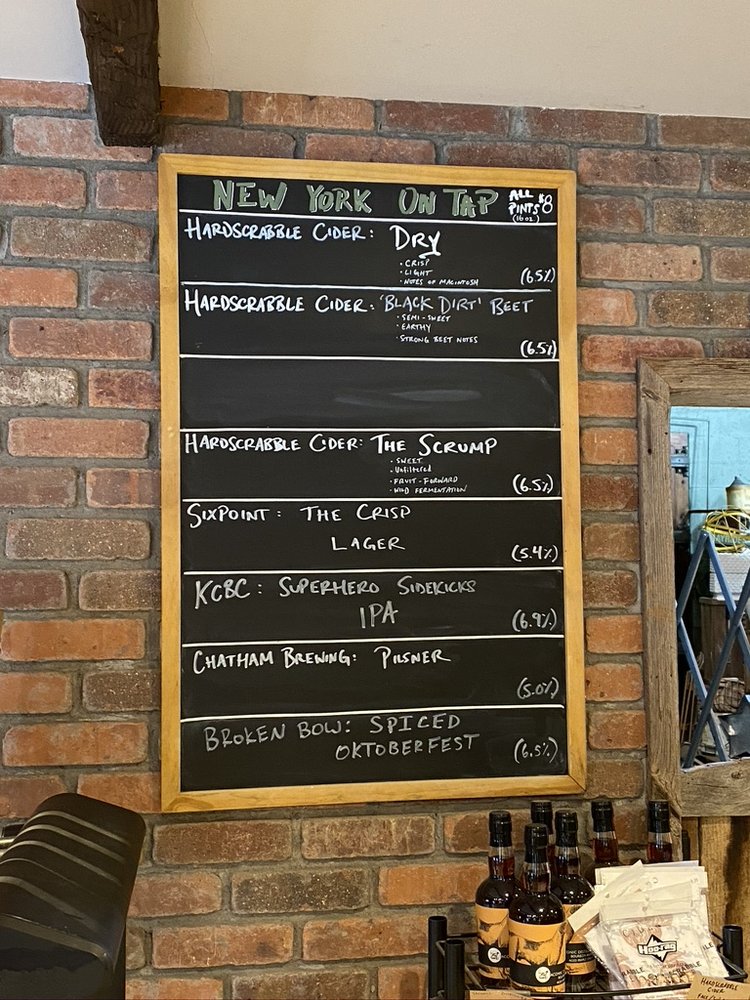 NEW YORK ON TAP
ALL $8
PINTS
(16oz.)
HARDSCRABBLE CIDER: DRY
• CRISP
• LIGHT
• NOTES OF MACINTOSH
(6.5%)
HARDSCRABBLE CIDER: 'BLACK DIRT' BEET
• SEMI-SWEET
• EARTHY
• STRONG BEET NOTES
(6.5%)
HARDSCRABBLE CIDER: THE SCRUMP
• SWEET
• Unfiltered
• FRUIT-FORWARD
• WILD FERMENTATION
(6.5%)
SIXPOINT: THE CRISP
LAGER
(5.4%)
KCBC: SUPERHERO SIDEKICKS
IPA
(6.9%)
CHATHAM BREWING: PILSNER
(5.0%)
BROKEN BOW: SPICED
OKTOBERFEST
(6.5%)
Hoo-rag
HARDSCRABBLE
CIDER